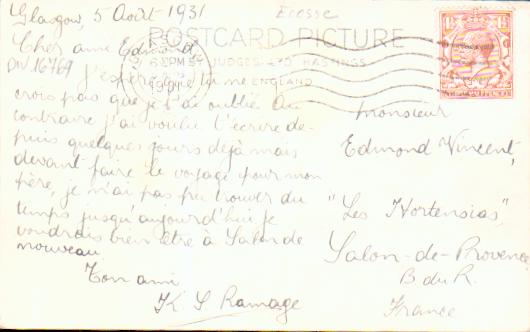 Glasgow, 5 Août 1931.
Ecosse
Cher ami Edmond
POSTCARD PICTURE
DIV 16769
JUDGES LTD HASTINGS
ENGLAND
J'espère que tu ne
crois pas que je t'ai oublié. Au
contraire j'ai voulu t'écrire de-
puis quelques jours déjà mais
devant faire le voyage pour mon
père, je n'ai pas pu trouver du
temps jusqu'aujourd'hui. Je
voudrais bien être à Salon de
nouveau.
Ton ami
K S Ramage
Monsieur
Edmond Vincent,
"Les Hortensias",
Salon-de-Provence
B du R.
France